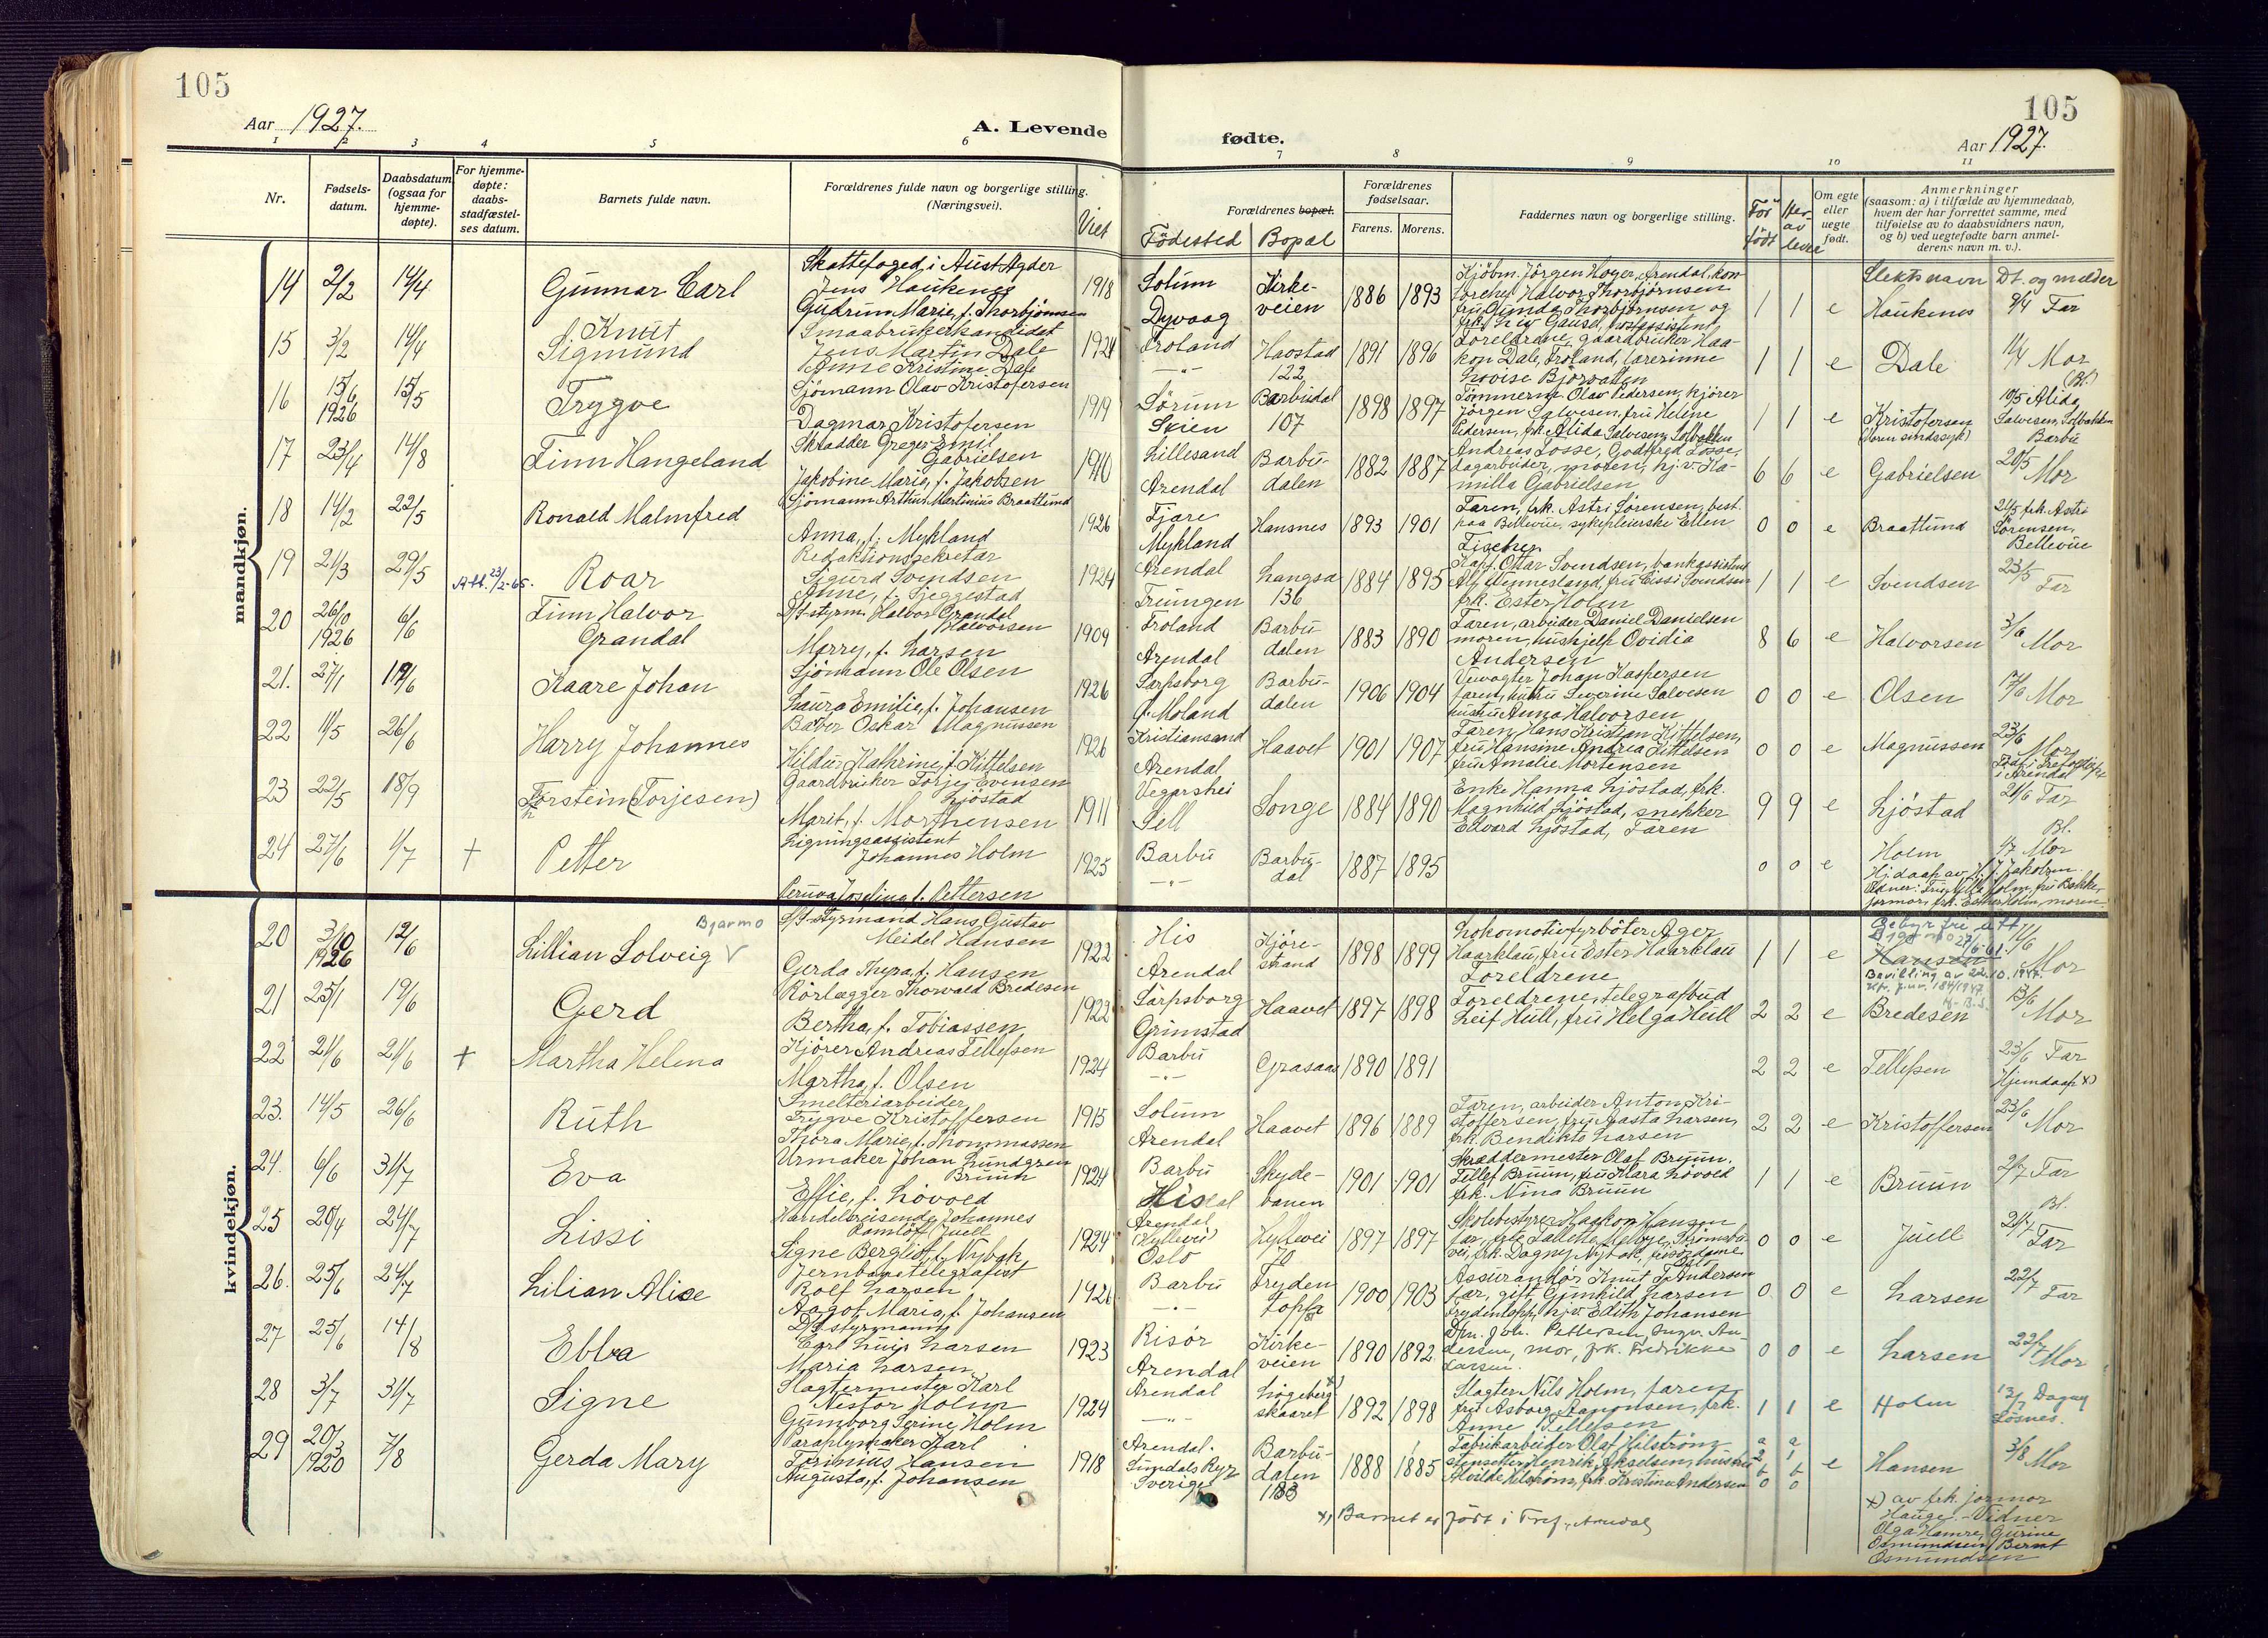 105
105
Aar 1927.
A. Levende
fødte.
Aar 1927.
1 2 3 4 5 6 7 8 9 10 11
Nr.
Fødsels-
datum.
Daabsdatum
(ogsaa for
hjemme-
døpte).
For hjemme-
døpte:
daabs-
stadfæstel-
ses datum.
Barnets fulde navn.
Forældrenes fulde navn og borgerlige stilling.
(Næringsvei).
Viet
Forældrenes bopæl.
Födested Bopæl
Forældrenes
fødselsaar.
Farens. Morens.
Faddernes navn og borgerlige stilling.
För
födt
Her-
av
lever
Om egte
eller
uegte
født.
Anmerkninger
(saasom: a) i tilfælde av hjemmedaab,
hvem der har forrettet samme, med
tilføielse av to daabsvidners navn,
og b) ved uegtefødte barn anmel-
derens navn m. v.).
Slektsnavn Dt. og melder
mandkjøn.
14 2/2 14/4 Gunnar Carl
Skattefoged i Aust Agder
Jens Haukenes
Gudrun Marie, f. Thorbjörnsen
1918
Solum
Dyvaag
Kirke-
veien
1886 1893
Kjöbm. Jörgen Hoger, Arendal, kon
torchef Halvor Thorbjørnsen
fru Gunda Thorbjörnsen og
frk. Liv Gausel, postassistent
1 1 e Haukenes 9/4 Far
15 3/2 14/4 Knut
Sigmund
Smaabrukerkandidat
Jens Martin Dale
Anne Kristine Dale
1924
Froland
-"-
Haostad
122
1891 1896
Foreldrene, gaardbruker Haa-
kon Dale, Froland, lærerinne
Lovise Björvatten
1 1 e Dale 11/4 Mor
(Bl.)
16 15/6
1926
15/5 Trygve
Sjömann Olav Kristofersen
Dagmar Kristofersen
1919
Sörum
Skien
Barbudal
107
1898 1897
Tömmerm. Olav Pedersen, kjörer
Jörgen Salvesen, fru Helene
Pedersen, frk. Alida Salvesen, Solbakken
1 1 e Kristofersen
(Moren sindssyk)
10/5 Alida
Salvesen, Solbakken
Barbu
17 23/4 14/8 Finn Hangeland
Skradder Greger Emil
Gabrielsen
Jakobine Marie, f. Jakobsen
1910
Lillesand
Arendal
Barbu-
dalen
1882 1887
Andreas Fosse, Godtfred Fosse,
dagarbeider, moren, hj.v. Ka-
milla Gabrielsen
6 6 e Gabrielsen 20/5
Mor
18 14/2 22/5 Ronald Malmfred
Sjömann Arthur Martinius Braatlund
Anna, f. Mykland
1926
Fjære
Mykland
Hansnes
1893 1901
Faren, frk. Astri Sörensen, best.
paa Bellevue, sykepleierske Ellen
Fischer
0 0 e Braatlund
21/5 frk. Astri
Sörensen,
Bellevue
19 21/3 29/5 Att. 23/2-65. Roar
Redaktionssekretær
Sigurd Svendsen
Anne, f. Sjeggestad
1924
Arendal
Treungen
Langsæ
136
1884 1895
Kapt. Ottar Svendsen, bankassistent
Alf Hennesland, fru Cissi Svendsen
frk. Ester Holm
1 1 e Svendsen 23/5
Far
20 26/10
1926
6/6 Finn Halvor
Grandal
D/S styrm. Halvor Grandal
Halvorsen
Marry, f. Larsen
1909
Froland
Arendal
Barbu
dalen
1883 1890
Faren, arbeider Daniel Danielsen
moren, hushjelp Ovidia
Andersen
8 6 e Halvorsen 3/6
Mor
21. 27/1 19/6 Kaare Johan
Sjömann Ole Olsen
Laura Emilie, f. Johansen
1926
Sarpsborg
Ø. Moland
Barbu-
dalen
1906 1904
Veivogter Johan Kaspersen
faren, hustru Severine Salvesen
hustru Anna Halvorsen
0 0 e Olsen 17/6 Mor
22 11/5 26/6 Harry Johannes
Baker Oskar Magnussen
Hildur Kathrine, f. Kittelsen
1926
Kristiansand
Arendal
Haavet
1901 1907
Faren, Hans Kristian Kittelsen,
fru Hansine Andrea Kittelsen
fru Amalie Mortensen
0 0 e Magnussen 23/6
Mor
i Arendal
23 22/5 18/9 Torstein (Torjesen)
h
Gaardbruker Torjei Evensen
Ljöstad
Marit, f. Morthensen
1911
Vegarshei
Sell
Songe
1884 1890
Enke Hanna Ljöstad, frk.
Magnhild Ljöstad, snekker
Edvard Ljöstad, Faren
9 9 e Ljöstad 21/6 Far
Bl.
24 27/6 1/7 + Petter
Ligningsassistent
Johannes Holm
Peruva Joseline f. Pettersen
1925
Barbu
-"-
Barbu-
dal
1887 1895
0 0 e Holm 1/7 Mor
Hj.daap av H. J. Jakobsen.
Vidner: Fru Lilla Holm, fru Bakke,
jormor, frk. Esther Holm, moren
kvindekjøn.
20 3/10
1926
12/6 Lillian Solveig
Bjarmo V
D/S styrmand Hans Gustav
Meidel Hansen
Gerda Thyra, f. Hansen
1922
His
Arendal
Kjöre-
strand
1898 1899
Lokomotivfyrböter Ager
Haarklau, fru Ester Haarklau
Foreldrene
1 1 e
Gebyr fri att
27/6-61.
Hansen 11/6
Mor
Bevilling av 22.10.1947.
21 25/1 19/6 Gerd
Rörlægger Thorvald Bredesen
Bertha, f. Tobiassen
1922
Sarpsborg
Grimstad
Haavet
1897 1898
Foreldrene, telegrafbud
Leif Hull, fru Helga Hull
2 2 e Bredesen 13/6
Mor
22 21/6 21/6 + Martha Helena
Kjörer Andreas Tellefsen
Martha, f. Olsen
1924
Barbu
-"-
Grasaas
1890 1891
2 2 e Tellefsen 23/6 Far
Hjemdaap x)
23. 14/5 26/6 Ruth
Smelteriarbeider
Trygve Kristoffersen
Thora Marie, f. Thommassen
1915
Solum
Arendal
Haavet
1896 1889
Faren, arbeider Anton Kri-
stoffersen, fru Aasta Larsen,
frk. Bendikte Larsen
2 2 e Kristoffersen 23/6
Mor
24. 6/6 31/7 Eva
Urmaker Johan Lundgren
Bruun
Effie, f. Lövold
1924
Barbu
Hisedal
Skyde-
banen
1901 1901
Skræddermester Olaf Bruun,
Tellef Bruun, fru Klara Lövold
frk. Nina Bruun
1 1 e Bruun 2/7 Far
Bl.
25 20/4 24/7 Lissi
Handelsreisende Johannes
Ramlöf Juell
Signe Bergliot, f. Nybak
1924
Arendal
(Kyllevei)
Oslo
Kyllevei
70
1897 1897
Skolebestyrer Haakon Hansen
0 0 e Juell 21/7
Far
26. 25/6 24/7 Lilian Alice
Jernbanetelegrafist
Rolf Larsen
Aagot Marie, f. Johansen
1926
Barbu
-"-
Fryden
topp
1900 1903
Assurandör Knut T. Andersen
far, gift Gunhild Larsen
Frydentopp, hjv. Edith Johansen
0 0 e Larsen 22/7
Far
27 25/6 14/8 Ebba
D/S styrmann
Carl Luis Larsen
Maria Larsen
1923
Risör
Arendal
Kirke-
veien
1890 1892
Dfm. Joh. Pettersen, Ingv. An-
dersen, mor, frk. Fredrikke
Larsen.
0 0 e Larsen 22/7
Mor
28 3/7 31/7 Signe
Slagtermester Karl
Nestor Holm
Gunborg Serine Holm
1924
Arendal
-"-
Högeberg x)
skaaret
1892 1898
Slagter Nils Holm, faren
fru Asborg Aanonsen, frk.
Anne Tellefsen
1 1 e Holm 13/7 Dagny
Lösnes.
29 20/3
1920
7/8 Gerda Mary
Paraplymaker Karl
Ferinius Hansen
Augusta, f. Johansen
1918
Arendal.
Sundals Ryr
Sverige
Barbu-
dalen
183
1888 1885
Fabrikarbeider Olaf Hilström
stensetter Henrik Akselsen, hustru
Alvilde Hilström, frk. Kristine Andersen
a a
2 1
b b
0 0
e Hansen 3/8 Mor
x) Barnet er födt i Tref., Arendal
x) av frk. jormor
Hauge. - Vidner
Olga Hamre, Gurine
Osmundsen, Bernt
Osmundsen